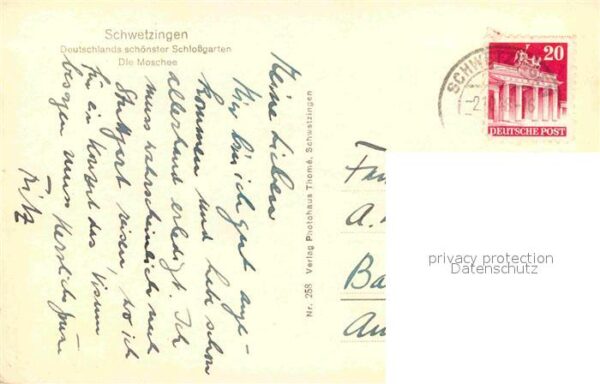 Schwetzingen
Deutschlands schönster Schloßgarten
Die Moschee
Meine Lieben
Hier bin ich gut ange-
kommen und habe schon
allerhand erledigt. Ich
muss wahrscheinlich nach
Stuttgart reisen, wo ich
für ein Konzert das Visum
besorgen muss Herzlich Euer
Fritz
Nr. 258 Verlag Photohaus Thomé, Schwetzingen
SCHW
20
DEUTSCHE POST
A.
Ba
privacy protection
Datenschutz